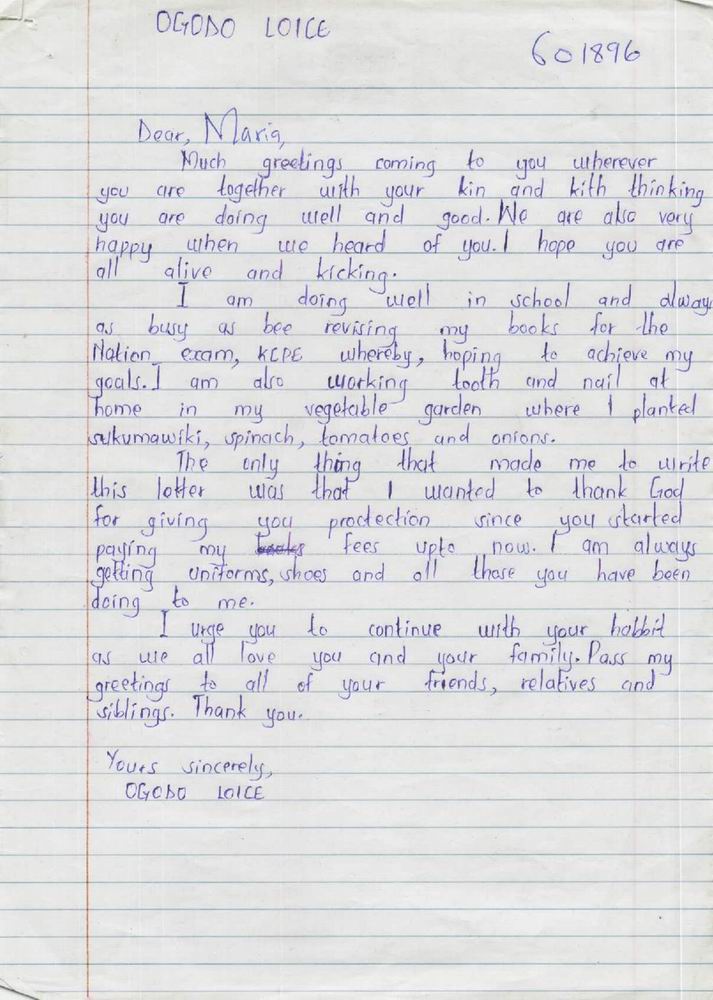 OGODO LOICE
601896
Dear, Maria,
Much greetings coming to you wherever
you are together with your kin and kith thinking
you are doing well and good. We are also very
happy when we heard of you. I hope you are
all alive and kicking.
I am doing well in school and always
as busy as bee revising my books for the
Nation exam, KCPE whereby, hoping to achieve my
goals. I am also working tooth and nail at
home in my vegetable garden where I planted
sukumawiki, spinach, tomatoes and onions.
The only thing that made me to write
this lotter was that I wanted to thank God
for giving you proctection since you started
paying my books fees upto now. I am always
getting uniforms, shoes and all those you have been
doing to me.
I urge you to continue with your habbit
as we all love you and your family. Pass my
greetings to all of your friends, relatives and
siblings. Thank you.
Yours sincerely,
OGODO LOICE